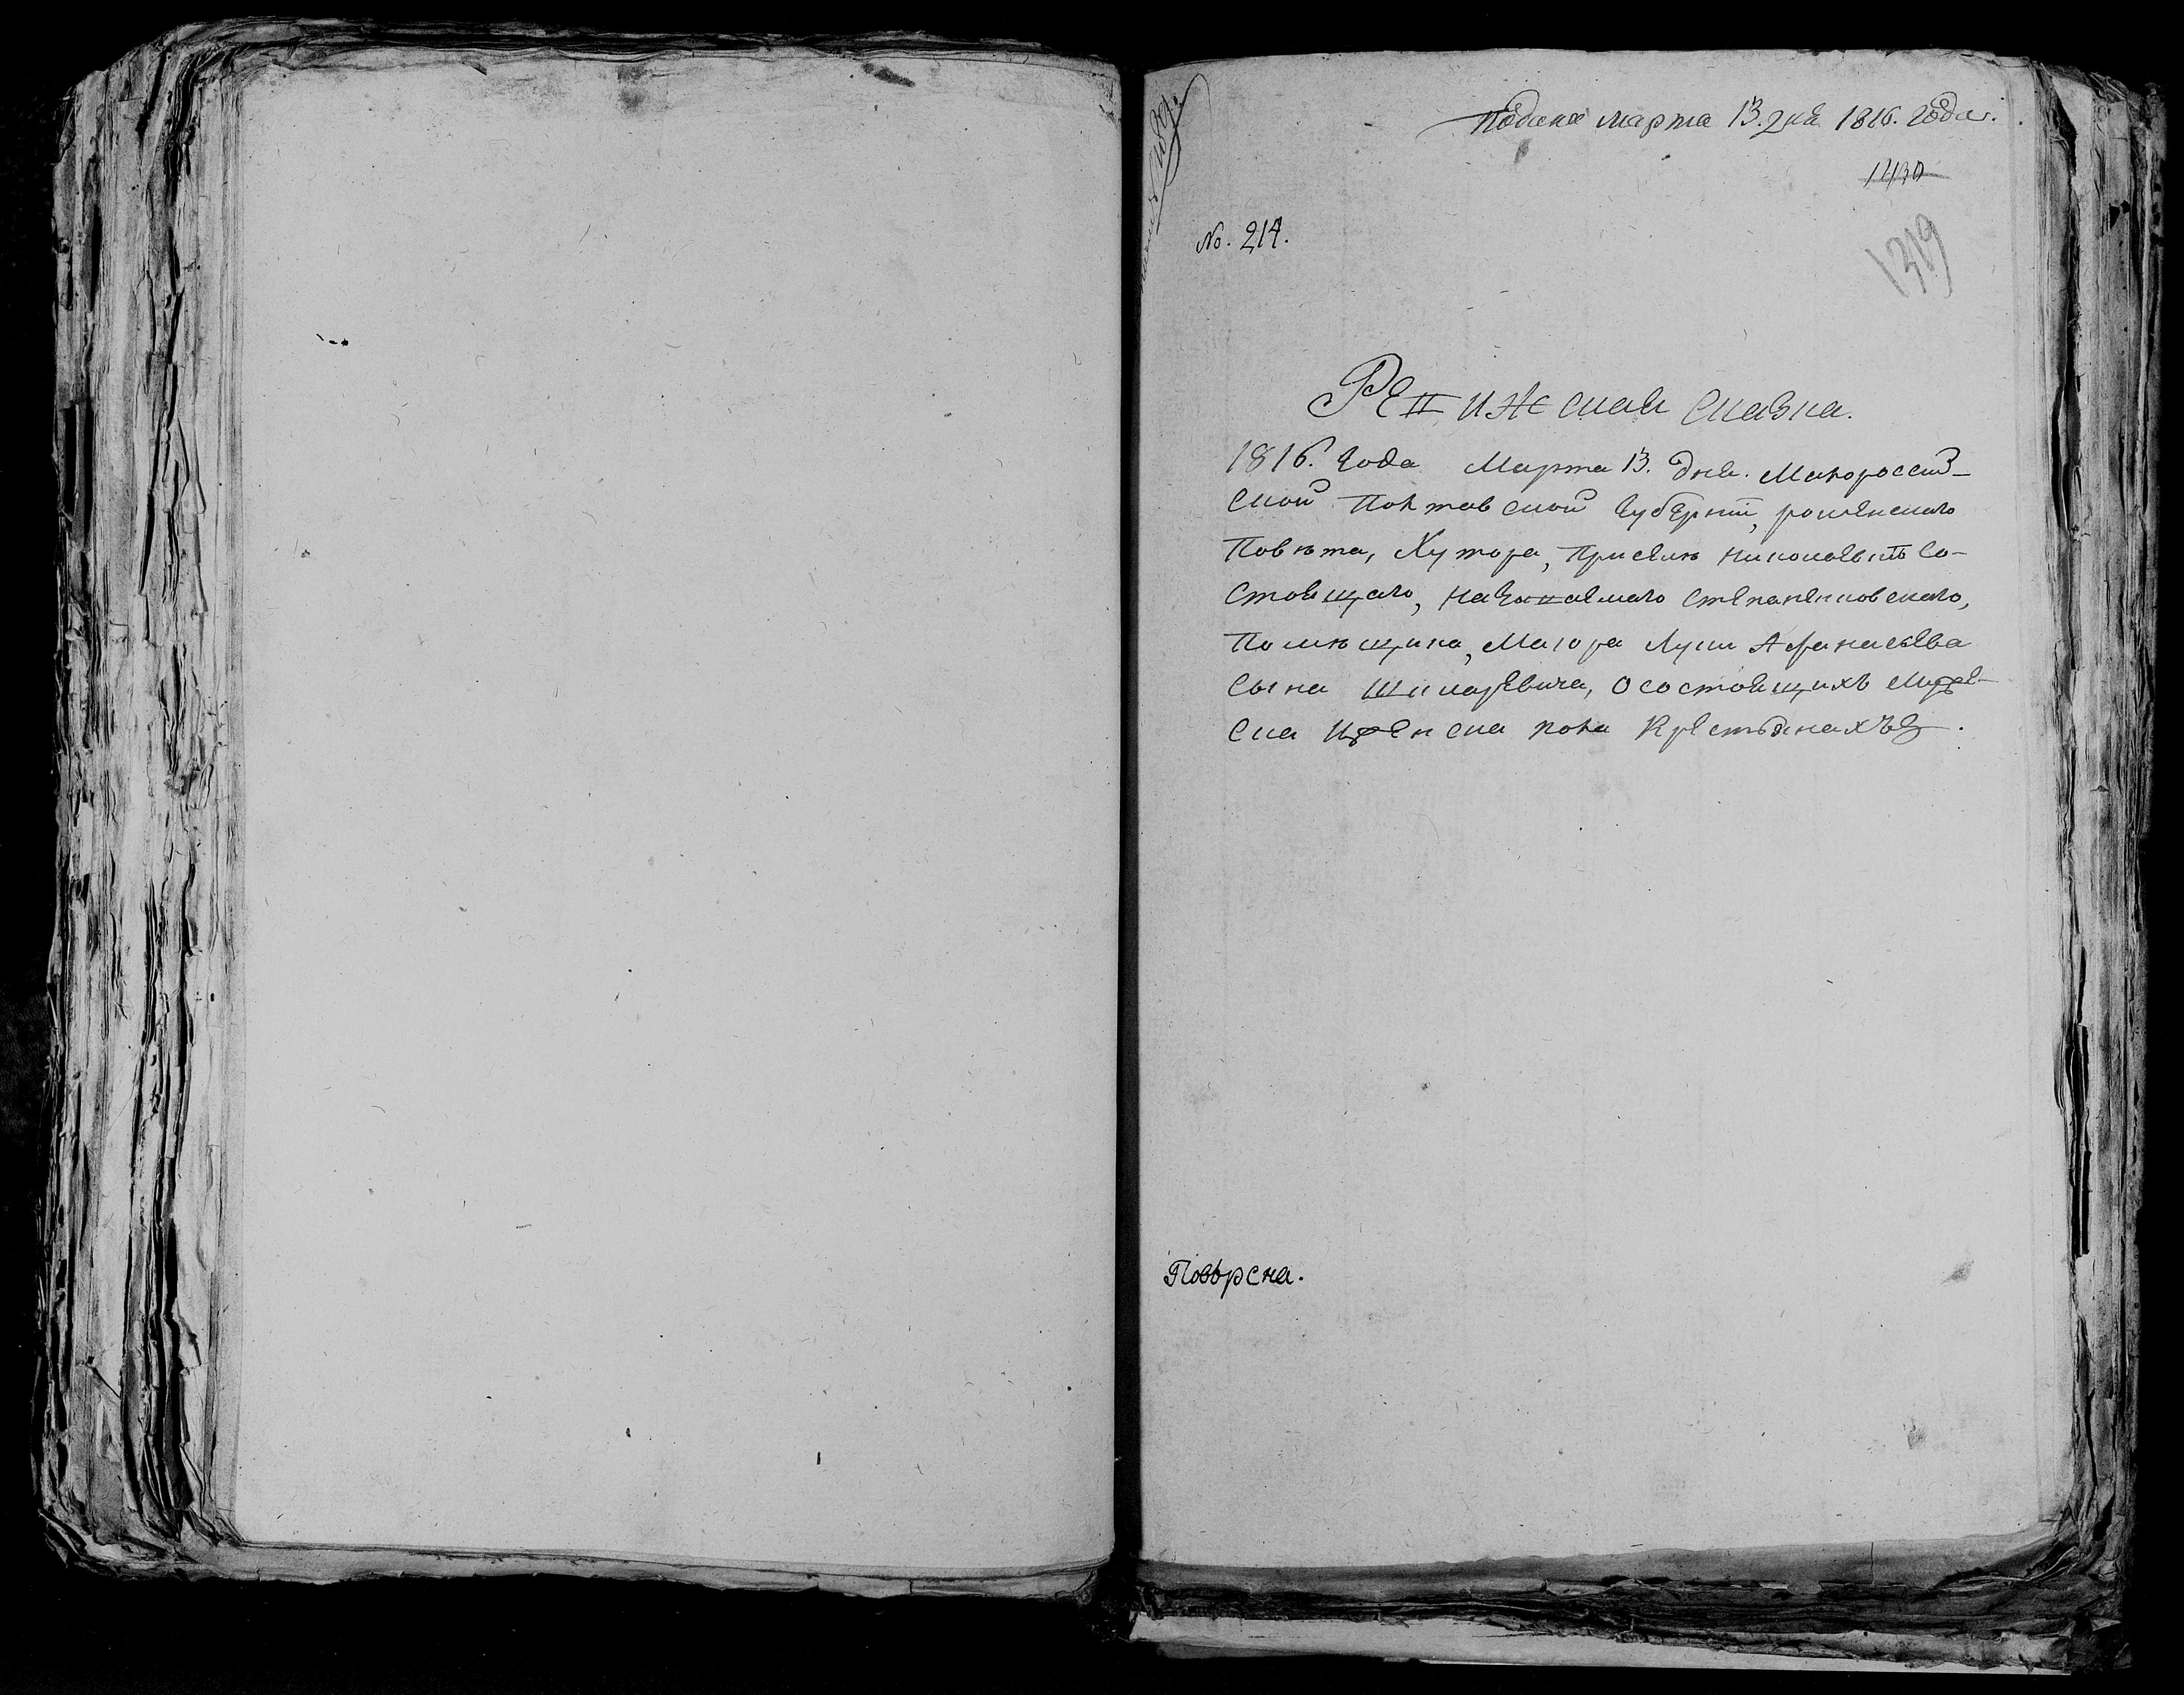 Подана марта 13. дня 1816. года.
1430
1319
No. 214.
Ревижская Сказка.
1816. года Марта 13. дня. Малороссий-
ской Полтавской губернии, роменского
Повѣта, Хутора, при селѣ николаевкѣ со-
стоящаго, называемаго Степаненковского,
Помѣщика, Маіора Луки Афанасьева
сына Шкларевича, о состоящихъ мужес-
ка и женска пола крестьянахъ.
Повѣрена.